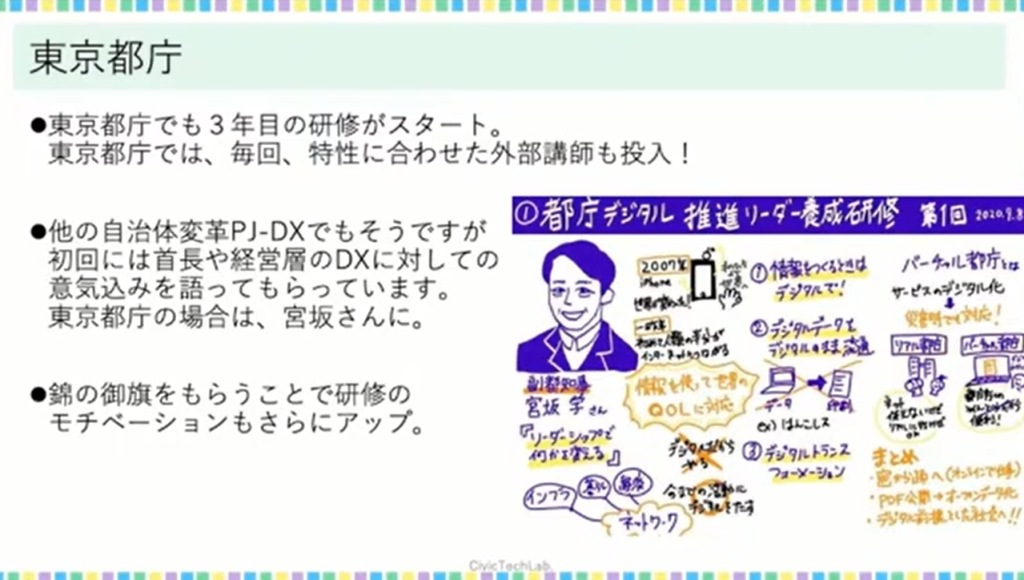 東京都庁
●東京都庁でも３年目の研修がスタート。
東京都庁では、毎回、特性に合わせた外部講師も投入！
●他の自治体変革PJ-DXでもそうですが
初回には首長や経営層のDXに対しての
意気込みを語ってもらっています。
東京都庁の場合は、宮坂さんに。
●錦の御旗をもらうことで研修の
モチベーションもさらにアップ。
①都庁デジタル 推進リーダー養成研修 第1回 2020.9.8
2007年
iPhone
副都知事
宮坂 学さん
『リーダーシップで
何かを変える』
インフラ
ネットワーク
情報を使って世界の
QOLに対応
①情報をつくるときは
デジタルで！
②デジタルデータを
デジタルのまま流通
データ
印刷
ex) はんこレス
③デジタルトランス
フォーメーション
バーチャル都庁とは
サービスのデジタル化
災害時でも対応！
リアル都庁
バーチャル都庁
まとめ
・PDF公開→オープンデータ化
CivicTechLab.